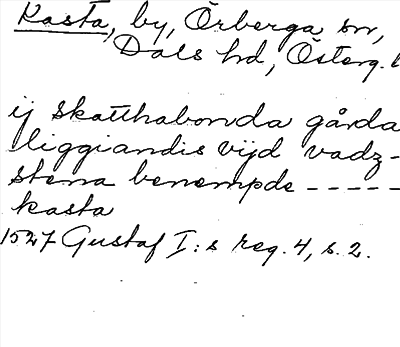 Kasta, by, Örberga sn,
Dals hd, Österg. l
ij skatthabonda gårda
liggiandis vijd vadz-
stena benempde -----
kasta
1527 Gustaf I:s reg. 4, s. 2.